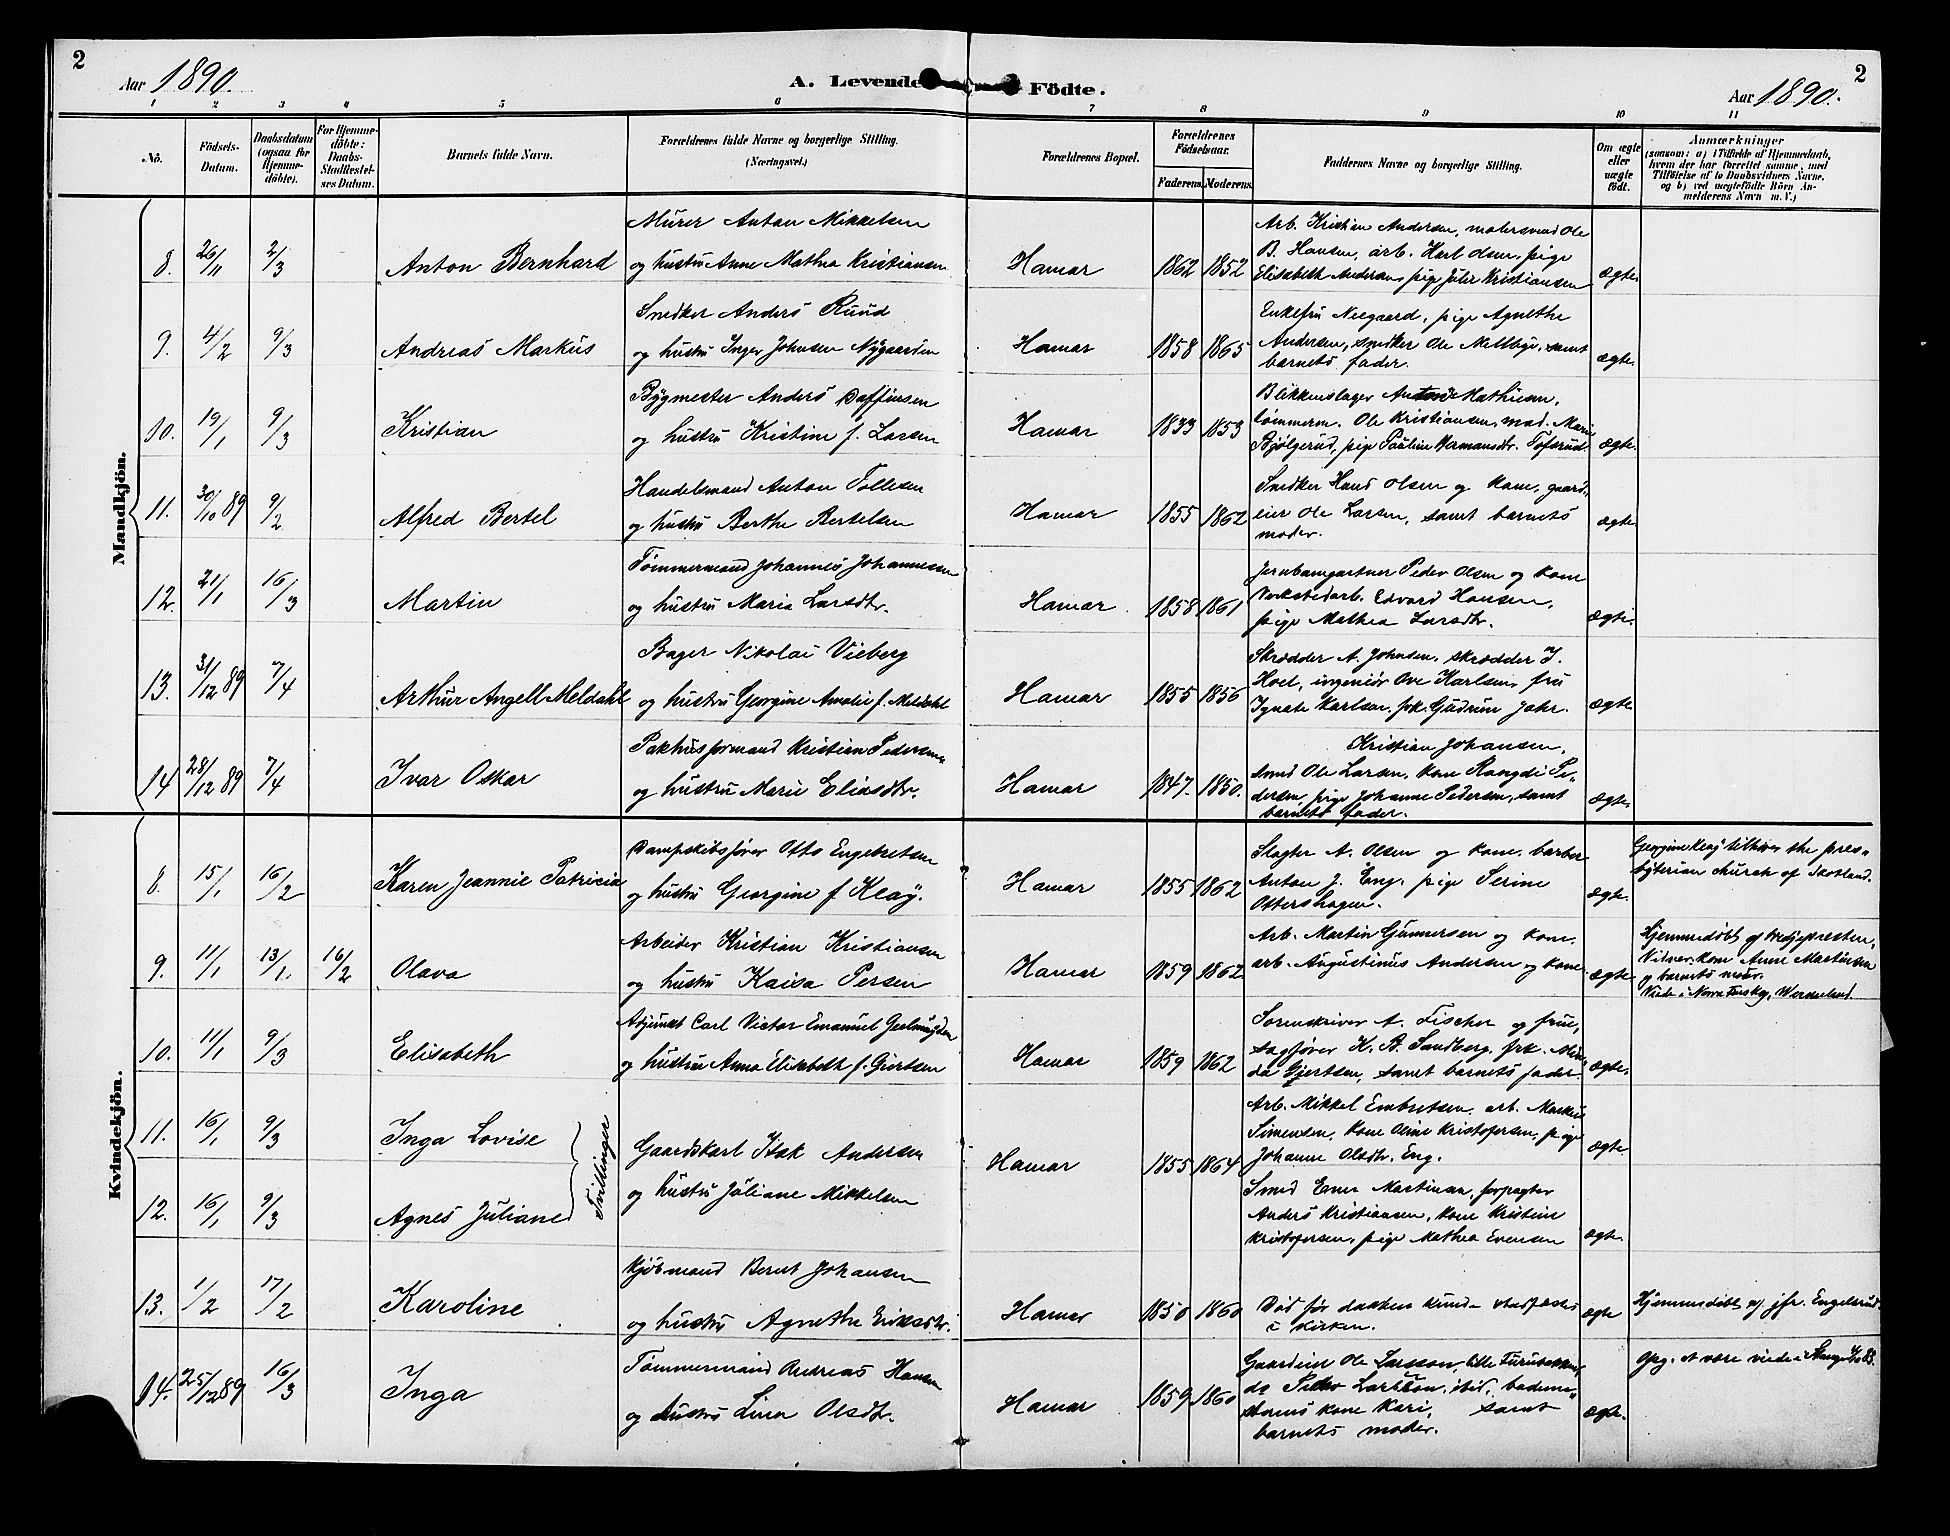 2
Aar 1890.
A. Levende Födte.
Aar 1890.
2
1 2 3 4 5 6 7 8 9 10 11
No.
Födsels-Datum.
Daabsdatum (ogsaa for Hjemme-döbte).
For Hjemme-döbte: Daabs-Stadfæstel-ses Datum.
Barnets fulde Navn.
Forældrenes fulde Navne og borgerlige Stilling. (Næringsvei.)
Forældrenes Bopæl.
Forældrenes Födselsaar.
Faderens. Moderens.
Faddernes Navne og borgerlige Stilling.
Om ægte eller uægte födt.
Anmærkninger
(saasom: a) i Tilfælde af Hjemmedaab,
hvem der har forrettet samme, med
Tilföielse af to Daabsvidners Navne,
og b) ved uægtefödte Börn An-
melderens Navn m. V.)
Mandkjön.
8. 26/11 2/3 Anton Bernhard
Murer Anton Mikkelsen
og hustru Anne Mathea Kristiansen
Hamar 1862 1852
Arb. Kristian Andersen, malersvend Ole
B. Hansen, arb. Karl Olsen, pige
Elisabeth Andersen, pige Julie Kristiansen
ægte.
9. 4/2 9/3 Andreas Markus
Snedker Anders Ruud
og hustru Inger Johnsen Nygaarden
Hamar 1858 1865
Enkefru Neegaard, pige Agnethe
Andersen, snedker Ole Melbye, samt
barnets fader.
ægte.
10. 19/1 9/3 Kristian
Bygmester Anders Daffinsen
og hustru Kristine f. Larsen
Hamar 1833 1853
Blikkenslager Mathisen,
tømmerm. Ole Kristiansen, mad. Marie
Bjølgerud, pige Pauline Hermansdtr. Tofsrud
ægte.
11. 30/10 89 9/2 Alfred Bertel
Handelsmand Anton Tollesen
og hustru Berthe Bertelsen
Hamar 1855 1862
Snedker Hans Olsen og kone, gaard-
eier Ole Larsen, samt barnets
moder.
ægte.
12. 21/1 16/3 Martin
Tømmermand Johannes Johannessen
og hustru Maria Larsdtr.
Hamar. 1858 1861
Jernbanegartner Peder Olsen og kone
Verkstedarb. Edvard Hansen,
pige Mathea Larsdtr.
ægte.
13. 31/12 89 7/4 Arthur Angell Meldahl
Bager Nikolai Vieberg
og hustru Georgine Amalie f. Meldahl
Hamar 1855 1856
Skrædder A. Johnsen, skrædder J.
Hoel, ingeniør Ove Karlsen, fru
Karlsen, frk. Gudrun Jahr.
ægte.
14 28/12 89 7/4 Ivar Oskar
Pakhusformand Kristian Pedersen
og hustru Marie Eliasdtr.
Hamar 1847. 1850.
Kristian Johansen,
smed Ole Larsen, kone Rangdi Pe-
dersen, pige Johanne Pedersen, samt
barnets fader.
ægte.
Kvindekjön.
8. 15/1 16/2 Karen Jeannie Patricia
Dampskibsfører Otto Engebretsen
og hustru Georgine f. Keay.
Hamar 1855 1862
Slagter A. Olsen og kone, barber
Anton J. Eng, pige Serine
Ottershagen.
ægte.
Georgine Keay tilhører the pres-
byterian church of Skotland.
9. 11/1 13/1. 16/2 Olava
Arbeider Kristian Kristiansen
og hustru Kaisa Persen
Hamar 1859 1862
Arb. Martin Gunnersen og kone.
arb. Augustinus Andersen og kone
ægte.
Hjemmedøbt af Medjepresten,
Vidner: kone Anne Martinsen
og barnets mour.
Viede i Norra Finskog, Wermeland.
10. 11/1 9/3 Elisabeth
Adjunkt Carl Victor Emanuel Geelmuyden
og hustru Anna Elisabeth f. Gjertsen
Hamar 1859 1862
Sorenskriver A. Fischer og frue,
sagfører H. A. Sandberg, frk. Min-
da Gjertsen, samt barnets fader.
ægte.
11. 16/1 9/3 Inga Lovise
12. 16/1 9/3 Agnes Juliane
Tvillinger
Gaardskarl Isak Andersen
og hustru Juliane Mikkelsen
Hamar 1855 1864
Arb. Mikkel Embretsen, arb. Markus
Simensen, kone Oline Kristofersen, pige
Johanne Olsdtr. Eng.
ægte.
Smed Martinsen, forpagter
Anders Kristiansen, kone Kristine
Kristofersen, pige Mathea Evensen
ægte.
13. 1/2 17/2 Karoline
Kjøbmand Bernt Johansen
og hustru Agnethe Eriksdtr.
Hamar 1850 1860
Død før daaben kunde stadfæstes
i kirken.
ægte
Hjemmedøbt af jfr. Engelsrud.
14. 25/12 89 16/3 Inga
Tømmermand Andreas Hansen
og hustru Lina Olsdtr.
Hamar 1859 1860
Gaardeier Ole Larsson, Lille Furubakken,
do Peder Larsson, ibid, bademe-
sterens kone Kari, samt
barnets moder.
ægte.
Opg. at være viede i Stange 83.